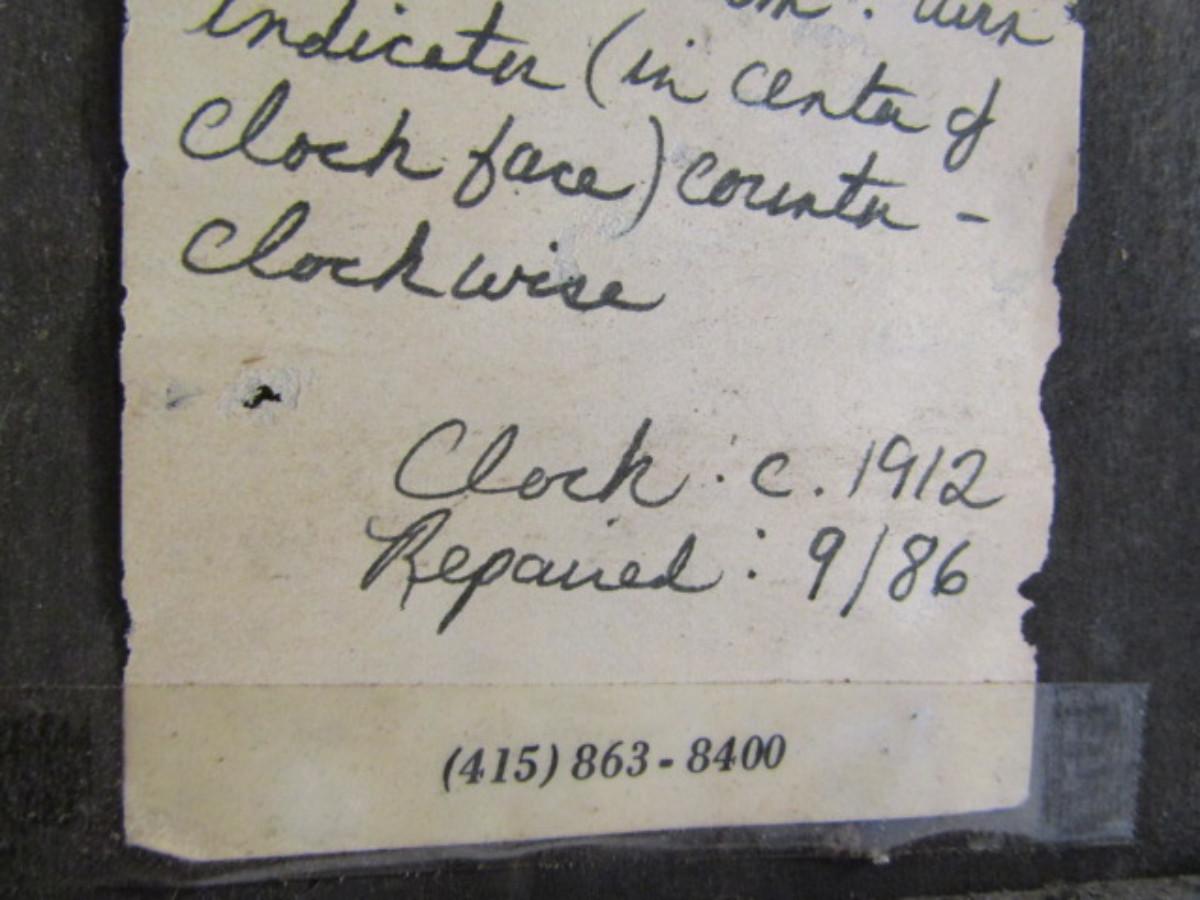 turn
indicator (in center of
Clock face) counter -
Clockwise
Clock : c. 1912
Repaired : 9/86
(415) 863-8400